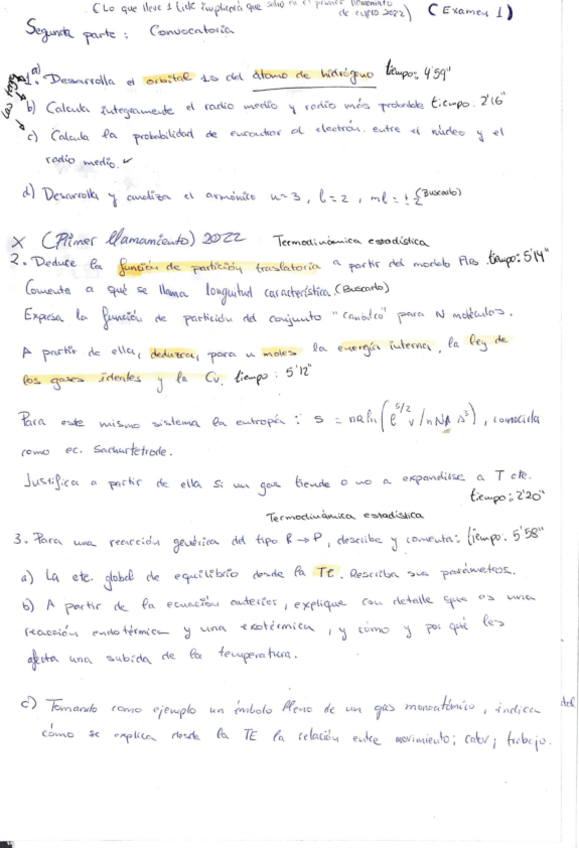 (Lo que lleve 1 (ick implicará que salió en el primer llamamiento
de curso 2022) (Examen 1)
Segunda parte: Convocatoria
1. a) Desarrolla el orbital 1s del átomo de hidrógeno tiempo: 4'59"
b) Calcula íntegramente el radio medio y radio más probable tiempo. 2'16"
c) Calcula la probabilidad de encontrar al electrón entre el núcleo y el
radio medio. ✓
d) Desarrolla y analiza el armónico n=3, l=2, ml=±2 (Buscarlo)
X (Primer llamamiento) 2022 Termodinámica estadística
2. Deduce la función de partición traslatoria a partir del modelo tiempo: 5'14"
Comenta a qué se llama longitud característica. (Buscarlo)
Expresa la función de partición del conjunto "canónico" para N moléculas.
A partir de ella, deduzca, para n moles la energía interna, la ley de
los gases ideales y la Cv. tiempo: 5'12"
Para este mismo sistema la entropía: S = nR ln(e^5/2 V/nNA Λ³), conocida
como ec. Sackurtetrode.
Justifica a partir de ella si un gas tiende o no a expandirse a T cte.
tiempo: 2'20"
Termodinámica estadística
3. Para una reacción genérica del tipo R → P, describe y comenta: tiempo. 5'58"
a) La cte. global de equilibrio desde la TE. Describa sus parámetros.
b) A partir de la ecuación anterior, explique con detalle que es una
reacción endotérmica y una exotérmica, y cómo y por qué les
afecta una subida de la temperatura.
c) Tomando como ejemplo un émbolo lleno de un gas monoatómico, indica
cómo se explica desde la TE la relación entre movimiento; calor; trabajo.